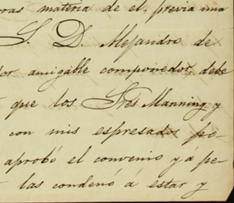 oras materia de el. previa una
S. D. Alejandro de
or amigable componedor, debe
que los Sres Manning y
con mis espresados pe
aprobó el convenio y á pe
las condenó á estar y